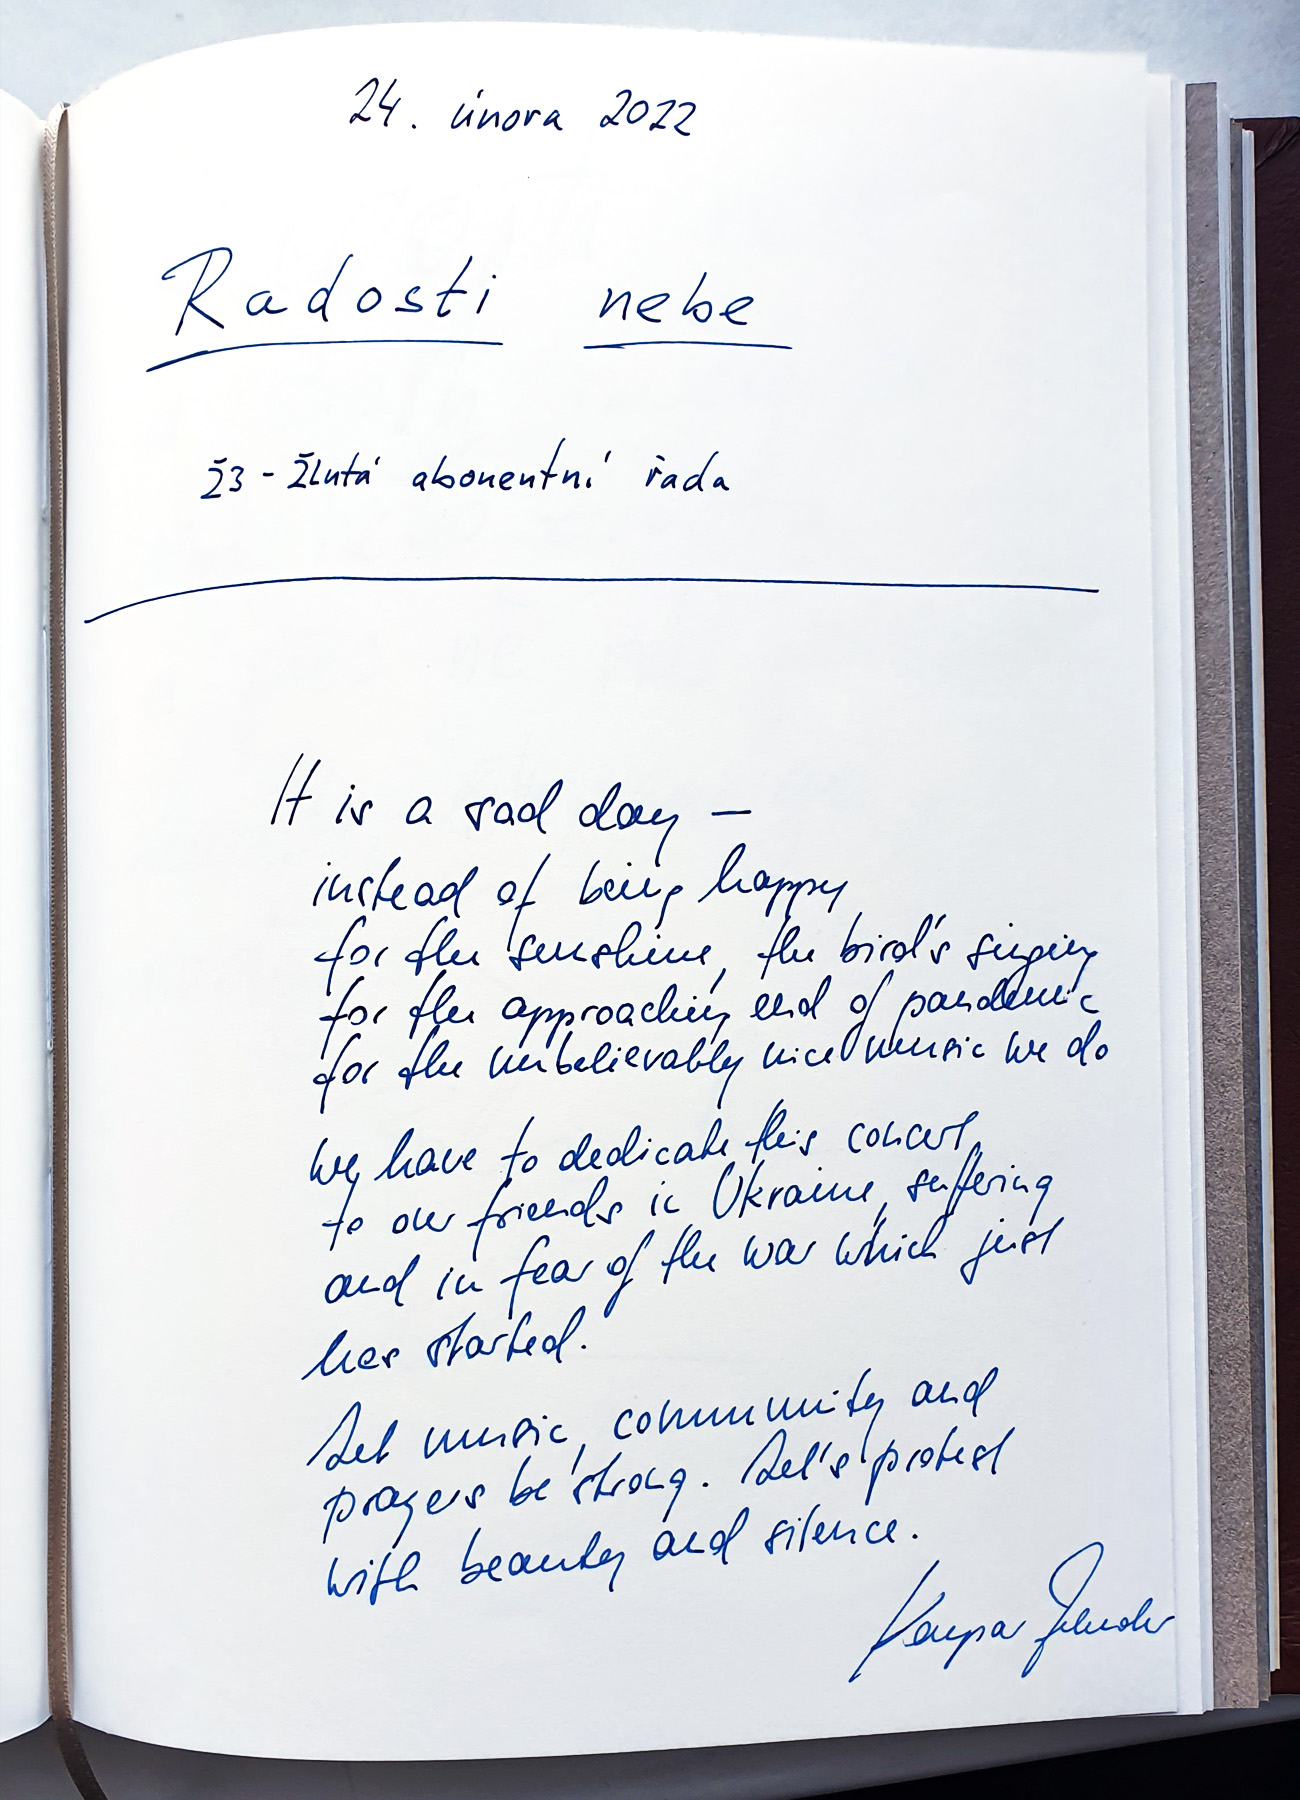 24. února 2022
Radosti nebe
Ž3 - Žlutá abonentní řada
It is a sad day –
instead of being happy
for the sunshine, the bird's singing
for the approaching end of pandemic
for the unbelievably nice music we do
we have to dedicate this concert
to our friends in Ukraine, suffering
and in fear of the war which just
has started.
Let music, community and
prayers be strong. Let's protest
with beauty and silence.
Kaspar Zehnder